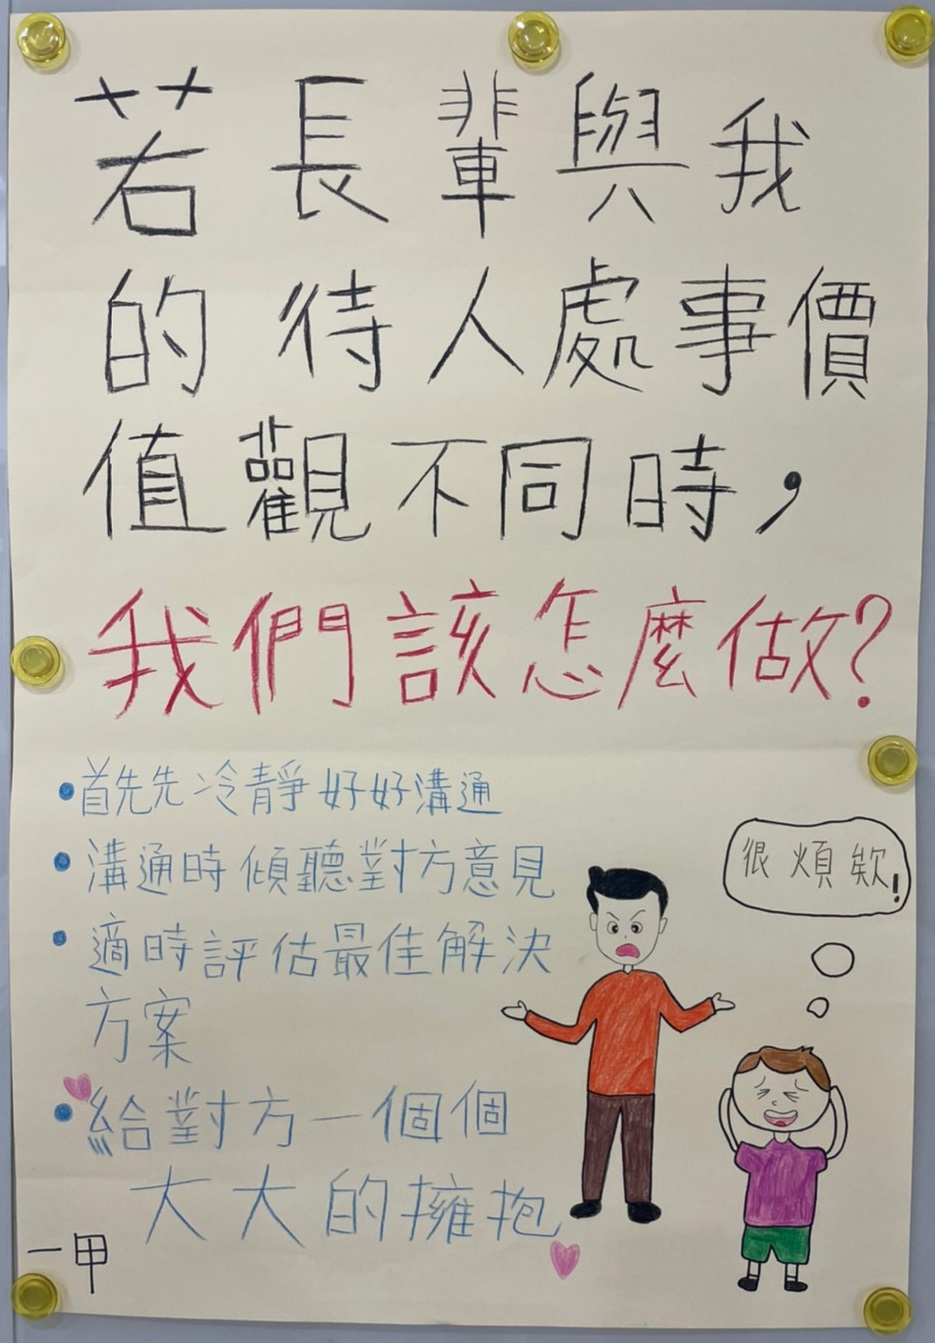 若長輩與我
的待人處事價
值觀不同時，
我們該怎麼做？
•首先先冷靜好好溝通
•溝通時傾聽對方意見
•適時評估最佳解決
方案
•給對方一個個
大大的擁抱
很煩欸！
一甲